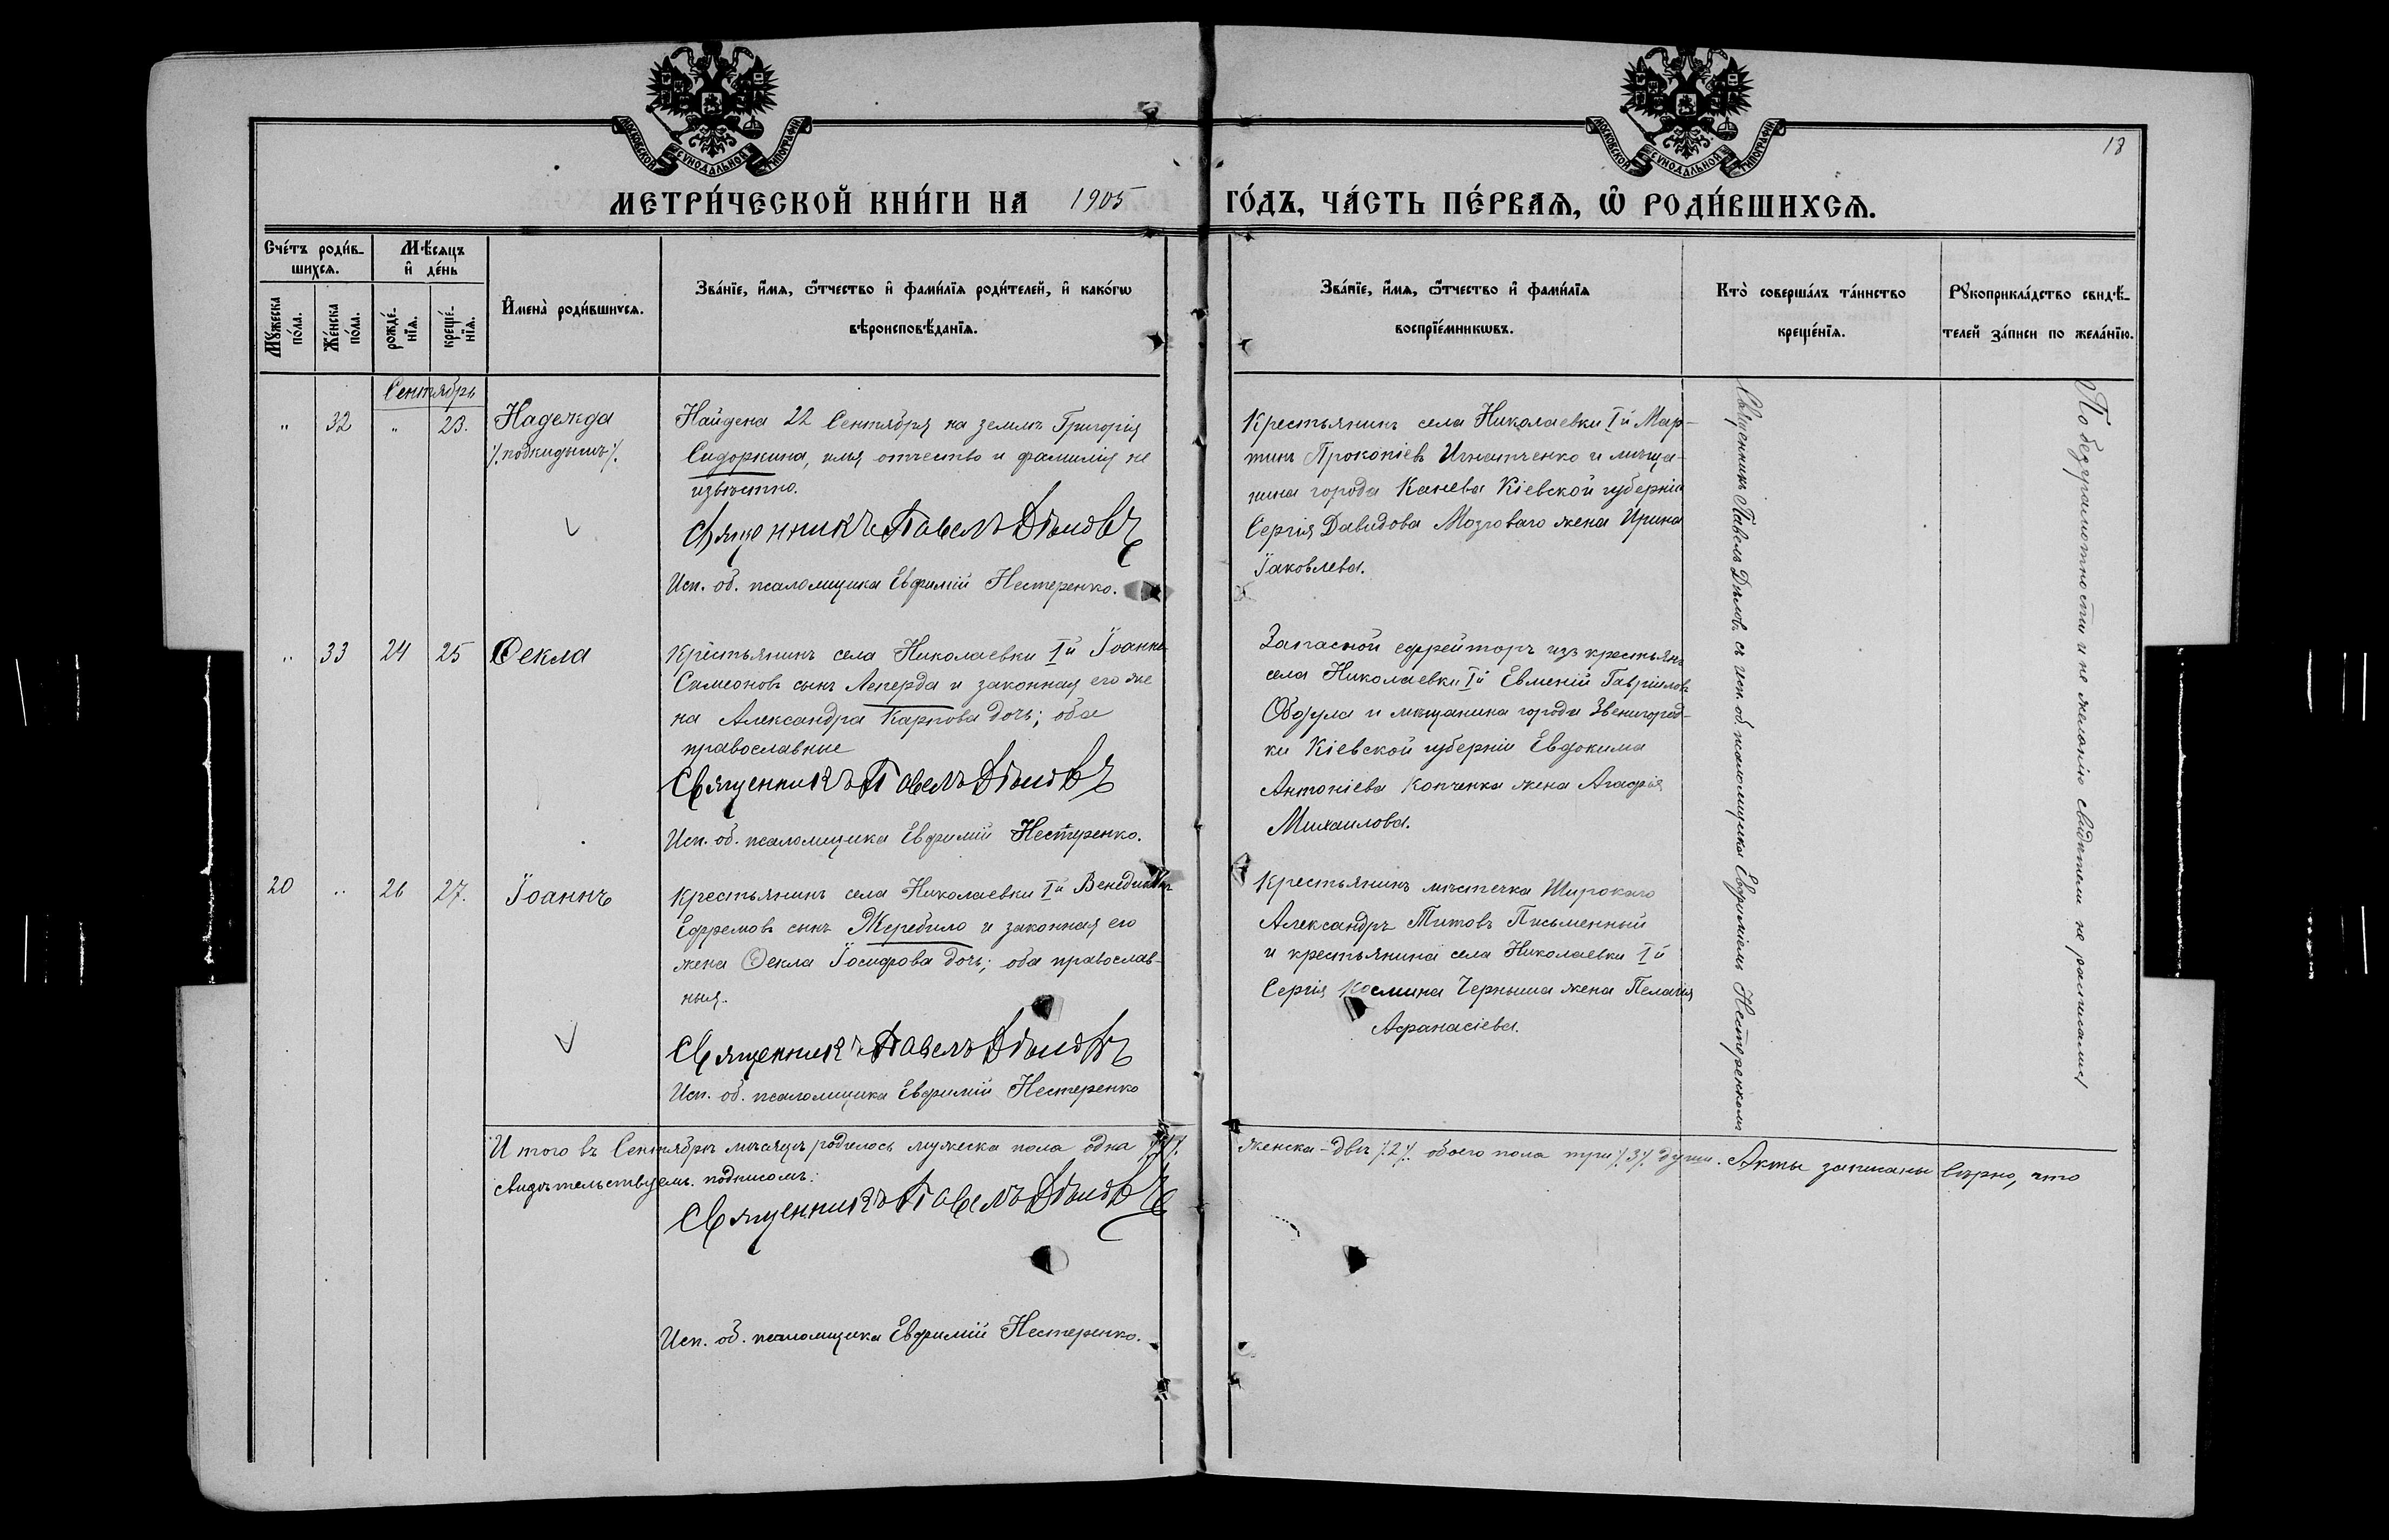 МОСКОВСКОЙ СѴНОДАЛЬНОЙ ТИПОГРАФІИ
МОСКОВСКОЙ СѴНОДАЛЬНОЙ ТИПОГРАФІИ
18
МЕТРИ́ЧЕСКОЙ КНИ́ГИ НА 1905 ГО́ДЪ, ЧА́СТЬ ПЕ́РВАѦ, Ѡ҆ РОДИ́ВШИХСѦ.
Сче́тъ роди́в-
шихсѧ.
Мꙋ́жеска
по́ла.
Же́нска
по́ла.
Мѣ́сѧцъ
и҆ де́нь
рожде́-
нїѧ.
креще́-
нїѧ.
И҆мена̀ роди́вшихсѧ.
Зва́нїе, и҆́мѧ, ѻ҆́тчество и҆ фами́лїѧ роди́телей, и҆ како́гѡ
вѣроисповѣ́данїѧ.
Зва́нїе, и҆́мѧ, ѻ҆́тчество и҆ фами́лїѧ
воспрїе́мникѡвъ.
Кто̀ соверша́лъ та́инство
креще́нїѧ.
Рꙋкоприкла́дство свидѣ́-
телей за́писи по жела́нїю.
Сентябрь
" 32 " 23.
Надежда
/.подкидышъ/.
Найдена 22 Сентября на землѣ Григорія
Сидоркина, имя отчество и фамилія не
извѣстно.
Священникъ Павелъ Дѣмовъ
Исп. об. псаломщика Евфимій Нестеренко.
Крестьянинъ села Николаевки Iй Мар-
тинъ Прокопіевъ Игнатченко и мѣща-
нина города Канева Кіевской губерніи
Сергія Давидова Мозговаго жена Ирина
Іаковлева.
" 33 24 25
Ѳекла
Крестьянинъ села Николаевки Iй Іоаннъ
Симеоновъ сынъ Леперда и законная его же
на Александра Карпова дочь; оба
православные
Священникъ Павелъ Дѣмовъ
Исп. об. псаломщика Евфимій Нестеренко.
Запасной ефрейторъ изъ крестьянъ
села Николаевки Iй Евменій Гавріиловъ
Обозула и мѣщанина города Звенигород-
ки Кіевской губерніи Евдокима
Антоніева Копченка жена Агафія
Михаилова.
20 " 26 27.
Іоаннъ
Крестьянинъ села Николаевки Iй Венедиктъ
Ефремовъ сынъ Жеребило и законная его
жена Ѳекла Іосифова дочь; оба православ-
ныя.
Священникъ Павелъ Дѣмовъ
Исп. об. псаломщика Евфимій Нестеренко
Крестьянинъ мѣстечка Широкаго
Александръ Титовъ Письменный
и крестьянина села Николаевки Iй
Сергія Космина Черныша жена Пелагія
Афанасіева.
Священникъ Павелъ Дѣмовъ съ исп. об. псаломщика Евфиміемъ Нестеренкомъ
По безграмотности и не желанію свидѣтели не расписались
И того въ Сентябрѣ мѣсяцѣ родилось мужеска пола одна /.1/. женска - двѣ /.2/. обоего пола три /.3/. души. Акты записаны вѣрно, что
свидѣтельствуемъ подписомъ:
Священникъ Павелъ Дѣмовъ
Исп. об. псаломщика Евфимій Нестеренко.